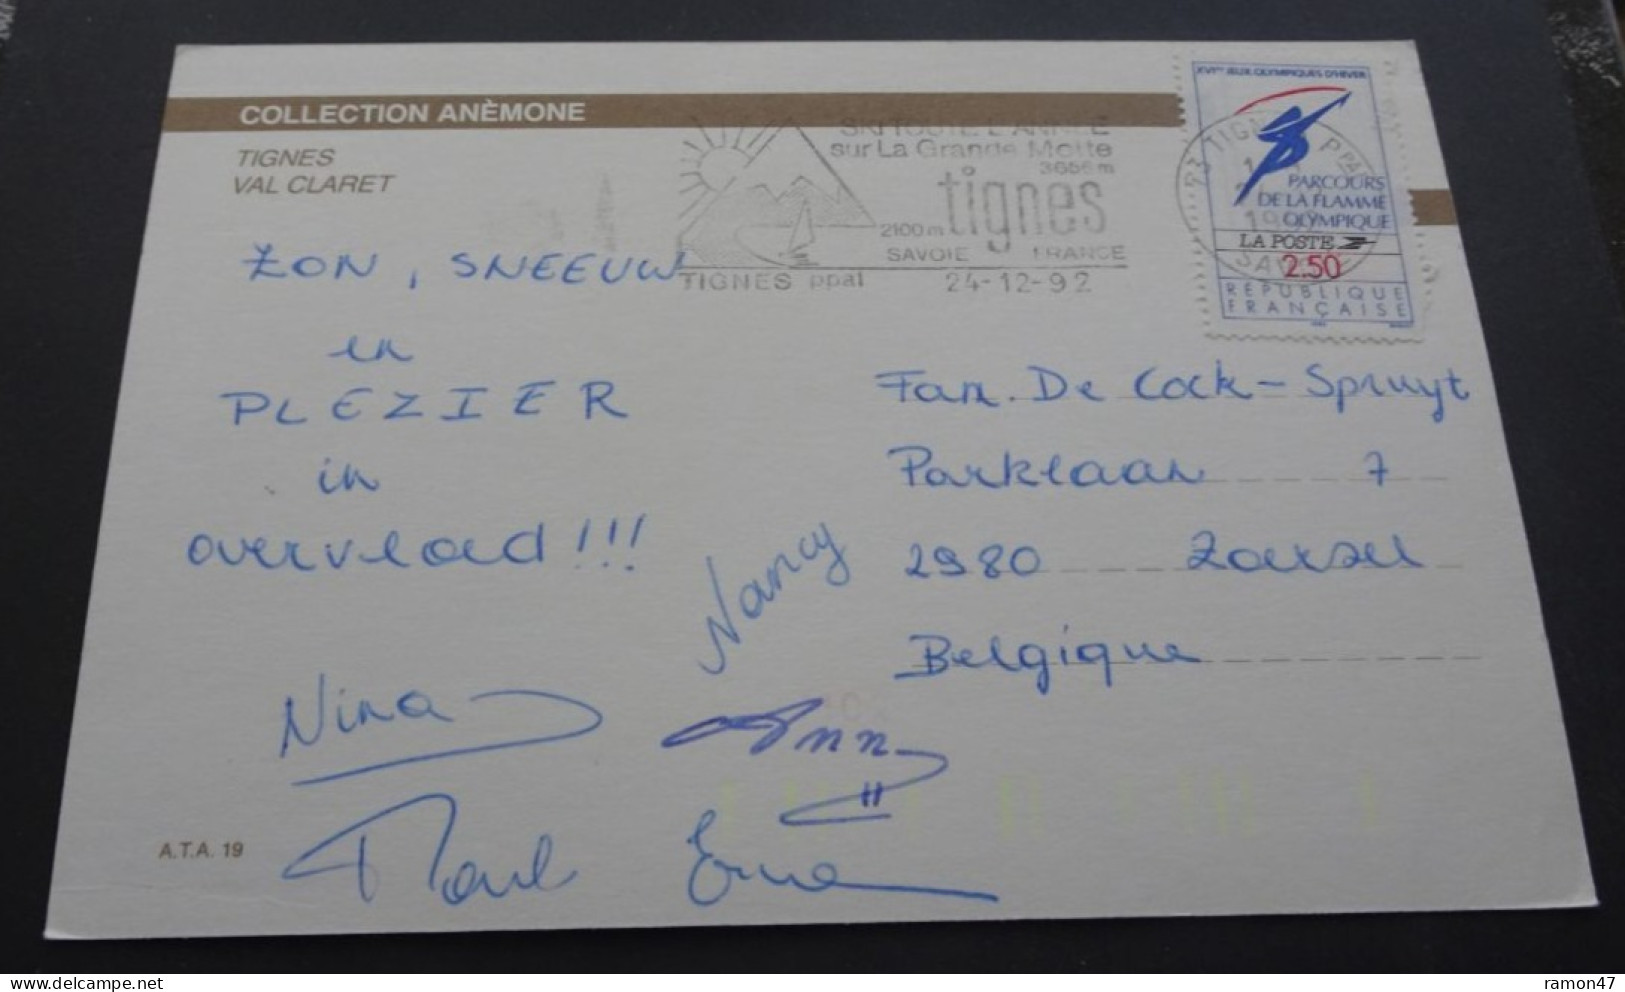 COLLECTION ANÈMONE
TIGNES
VAL CLARET
SKI TOUTE L'ANNÉE
sur La Grande Motte
3656 m
tignes
2100 m
SAVOIE FRANCE
TIGNES ppal 24-12-92
XVIes JEUX OLYMPIQUES D'HIVER
PARCOURS
DE LA FLAMME
OLYMPIQUE
LA POSTE
2.50
RÉPUBLIQUE
FRANÇAISE
ZON, SNEEUW
en
PLEZIER
in
overvloed!!!
Fam. De Cock-Spruyt
Parklaan 7
2980 Zoersel
Belgique
Nancy
Nina
Ann
Paul
A.T.A. 19
ramon47